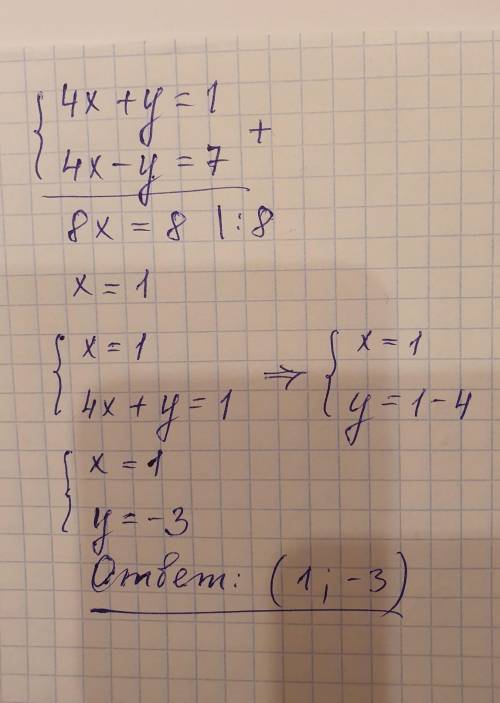 { 4x + y = 1
4x - y = 7 +
8x = 8 | : 8
x = 1
{ x = 1
4x + y = 1 ⇒ { x = 1
y = 1 - 4
{ x = 1
y = -3
Ответ: (1; -3)